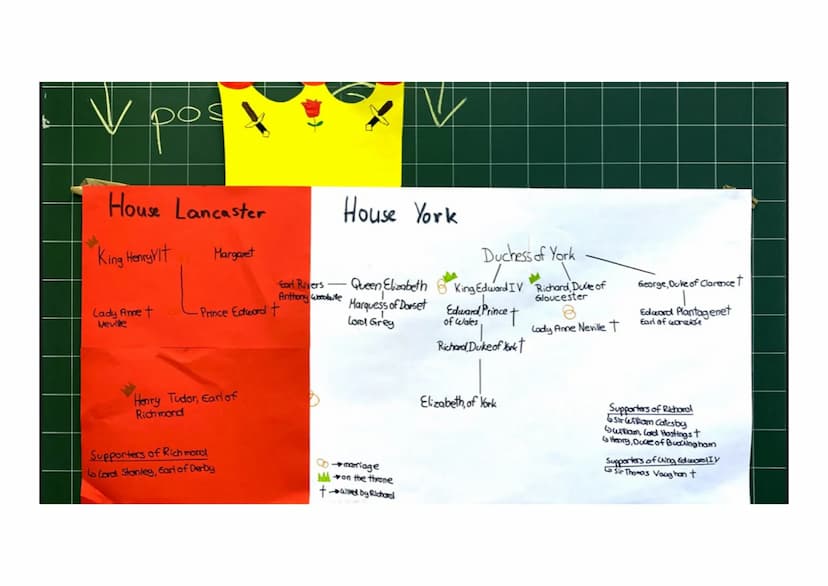 pos
House Lancaster
King Henry VI †
Margaret
Lady Anne †
Neville
Prince Edward †
Henry Tudor, Earl of
Richmond
Supporters of Richmond
↳ Lord Stanley, Earl of Derby
House York
Duchess of York
Earl Rivers
Anthony Woodville
Queen Elizabeth
Marquess of Dorset
Lord Grey
King Edward IV
Edward, Prince †
of Wales
Richard, Duke of York †
Elizabeth, of York
Richard, Duke of
Gloucester
Lady Anne Neville †
George, Duke of Clarence †
Edward Plantagenet
Earl of Warwick
Supporters of Richard
↳ Sir William Catesby
↳ William, Lord Hastings †
↳ Henry, Duke of Buckingham
Supporters of King Edward IV
↳ Sir Thomas Vaughan †
→ marriage
→ on the throne
† → killed by Richard